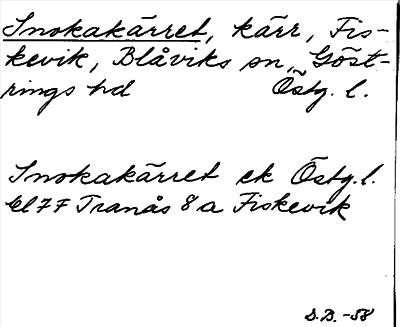 Snokakärret, kärr, Fis-
kevik, Blåviks sn, Göst-
rings hd Östg. l.
Snokakärret ek Östg. l.
bl 7 F Tranås 8 a Fiskevik
S.B. -58